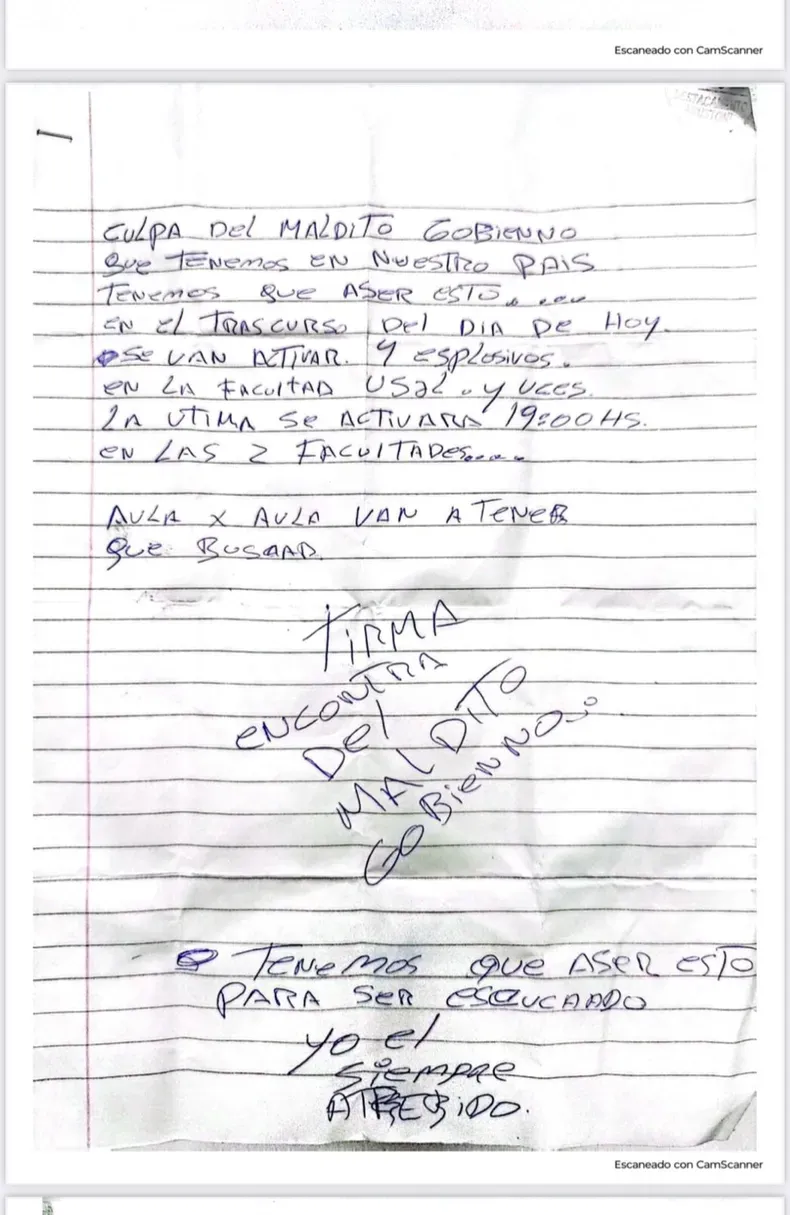 Escaneado con CamScanner
CULPA Del MALDITO GOBIENNO
QUE TENEMOS EN NUESTRO PAIS
TENEMOS QUE ASER ESTO. ....
EN El TRASCURSO Del DIA DE HOY.
SE VAN ACTIVAR. 4 ESPLOSIVOS.
EN LA FACULTAD USAL. Y UCES.
LA UTIMA SE ACTIVARA 19:00 HS.
EN LAS 2 FACULTADES.....
AULA X AULA VAN A TENER
QUE BUSCAR.
FIRMA
ENCONTRA
Del
MALDITO
GOBIENNO...
TENEMOS QUE ASER ESTO
PARA SER
yo el
siempre
ATREBIDO.
Escaneado con CamScanner